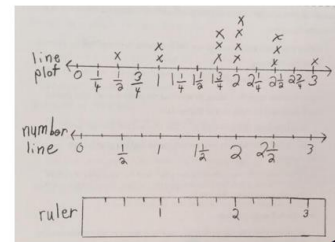 line plot
0 1/4 1/2 3/4 1 1 1/4 1 1/2 1 3/4 2 2 1/4 2 1/2 2 3/4 3
number line
0 1/2 1 1 1/2 2 2 1/2 3
ruler
1 2 3